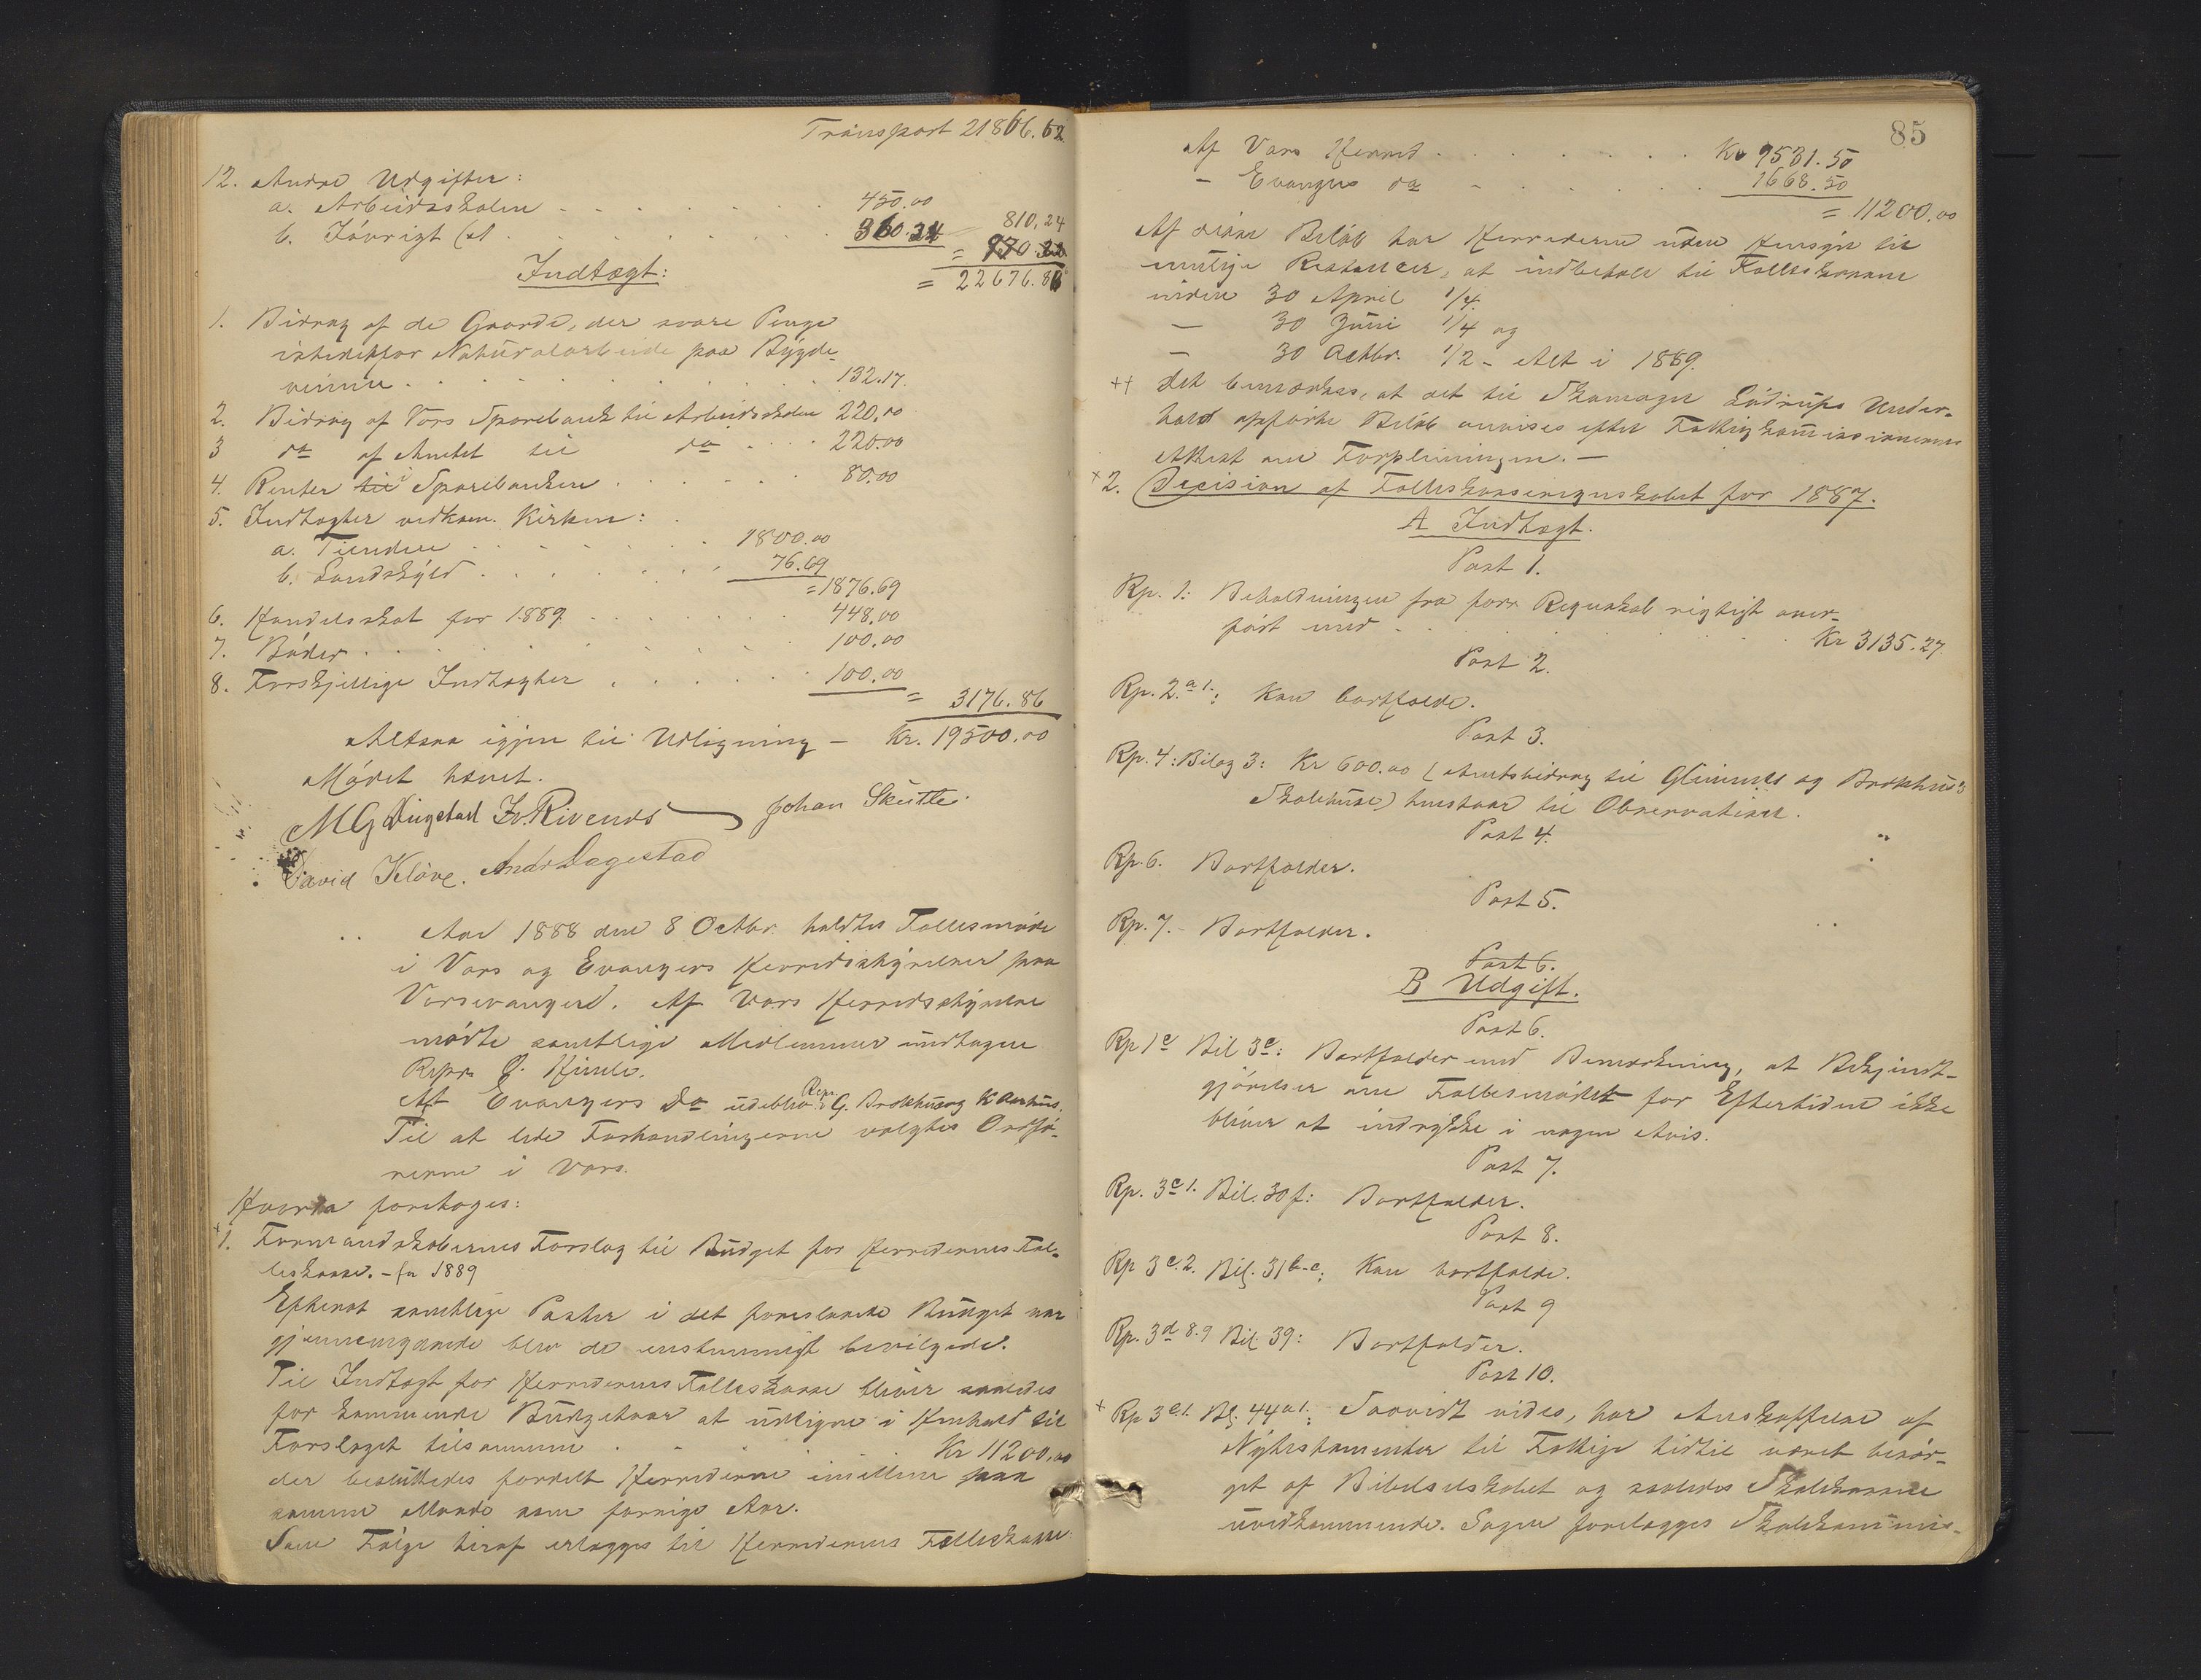 Transport 21866.62
12. Andre Udgifter:
a. Arbeidsskolen . . . . . . 450.00
b. Iøvrigt . . . . . . 360.24 810,24
=
Indtægt: = 22676.86
1. Bidrag af de Gaarde, der svare Penge
istedetfor Naturalarbeide paa Bygde-
veiene . . . . . . 132.17.
2. Bidrag af Vors Sparebank til Arbeidsskolen 220,00
3 do af Amtet til do . . . 220.00
4. Renter til i Sparebanken . . . . . 80.00
5. Indtægter vedkom. Kirken:
a. Tienden . . . . . . 1800.00
b. Landskyld . . . . . . 76.69
= 1876.69
6. Handelsskat for 1889 . . . . . . 448,00
7. Bøder . . . . . . 100.00
8. Forskjellige Indtægter . . . . . 100.00
= 3176.86
Altsaa igjen til Udligning – Kr. 19500.00
Mødet hævet.
MGDugstad Johan Skutle.
David Kløve. Andr Dagestad
Aar 1888 den 8 Octbr. holdtes Fællesmøde
i Vors og Evangers Herredsstyrelser paa
Vossevangen. Af Vors Herredsstyrelse
mødte samtlige Medlemmer undtagen
Repr. O. Himle.
Af Evangers do udeblev Repr. G. Brekhus og K Aarhus.
Til at lede Forhandlingerne valgtes Ordfø-
reren i Vors.
Hvorpaa foretoges:
+1. Formandskabernes Forslag til Budget for Herredernes Fæl-
leskasse. – for 1889
Efterat samtlige Poster i det foreslaaede Budget var
gjennemgaaede blev de enstemmigt bevilgede.
Til Indtægt for Herredernes Fælleskasse bliver saaledes
for kommende Budgetaar at udligne i Henhold til
Forslaget tilsammen . . . . . Kr 11200.00
der besluttedes fordelt Herrederne imellem paa
samme Maade som forrige Aar.
Som Følge heraf erlægges til Herredernes Fælleskasse:
85
Af Vors Herred . . . . . . . Kr 9531.50
– Evangers do – . . . . . 1668.50
= 11200.00
Af disse Beløb har Herrederne uden Hensyn til
mulige Restancer, at indbetale til Fælleskassen
inden 30 April 1/4.
— 30 Juni 1/4 og
— 30 Octbr. 1/2 – Alt i 1889.
++ Det bemærkes, at det til Skomager Lødrups Under-
hold opførte Beløb anvises efter Fattigkommissionens
Attest om Forpleiningen. –
+2. Decision af Fælleskasseregnskabet for 1887.
A Indtægt.
Post 1.
Rp. 1: Beholdningen fra forr Regnskab rigtigt over-
ført med . . . . . . Kr 3135.27.
Post 2.
Rp. 2.a 1.: Kan bortfalde.
Post 3.
Rp. 4: Bilag 3: Kr 600.00 (Amtsbidrag til Glimmes og Brekhus's
Skolehuse) henstaar til Observation.
Post 4.
Rp. 6. Bortfalder.
Post 5.
Rp. 7. – Bortfalder.
Post 6.
B Udgift.
Post 6.
Rp 1c Bil 3c: Bortfalder med Bemærkning, at Bekjendt-
gjørelser om Fællesmødet for Eftertiden ikke
bliver at indrykke i nogen Avis.
Post 7.
Rp. 3c 1. Bil. 30f: Bortfalder.
Post 8.
Rp 3c. 2. Bil. 31 b-c: Kan bortfalde.
Post 9
Rp. 3d 8.9 Bil 39: Bortfalder.
Post 10.
+ Rp 3e.1. Bil. 44a 1.: Saavidt vides, har Anskaffelse af
Nytestamenter til Fattige hidtil været besør-
get af Bibelselskabet og saaledes Skolekassen
uvedkommende. Sagen forelægges Skolekommis-